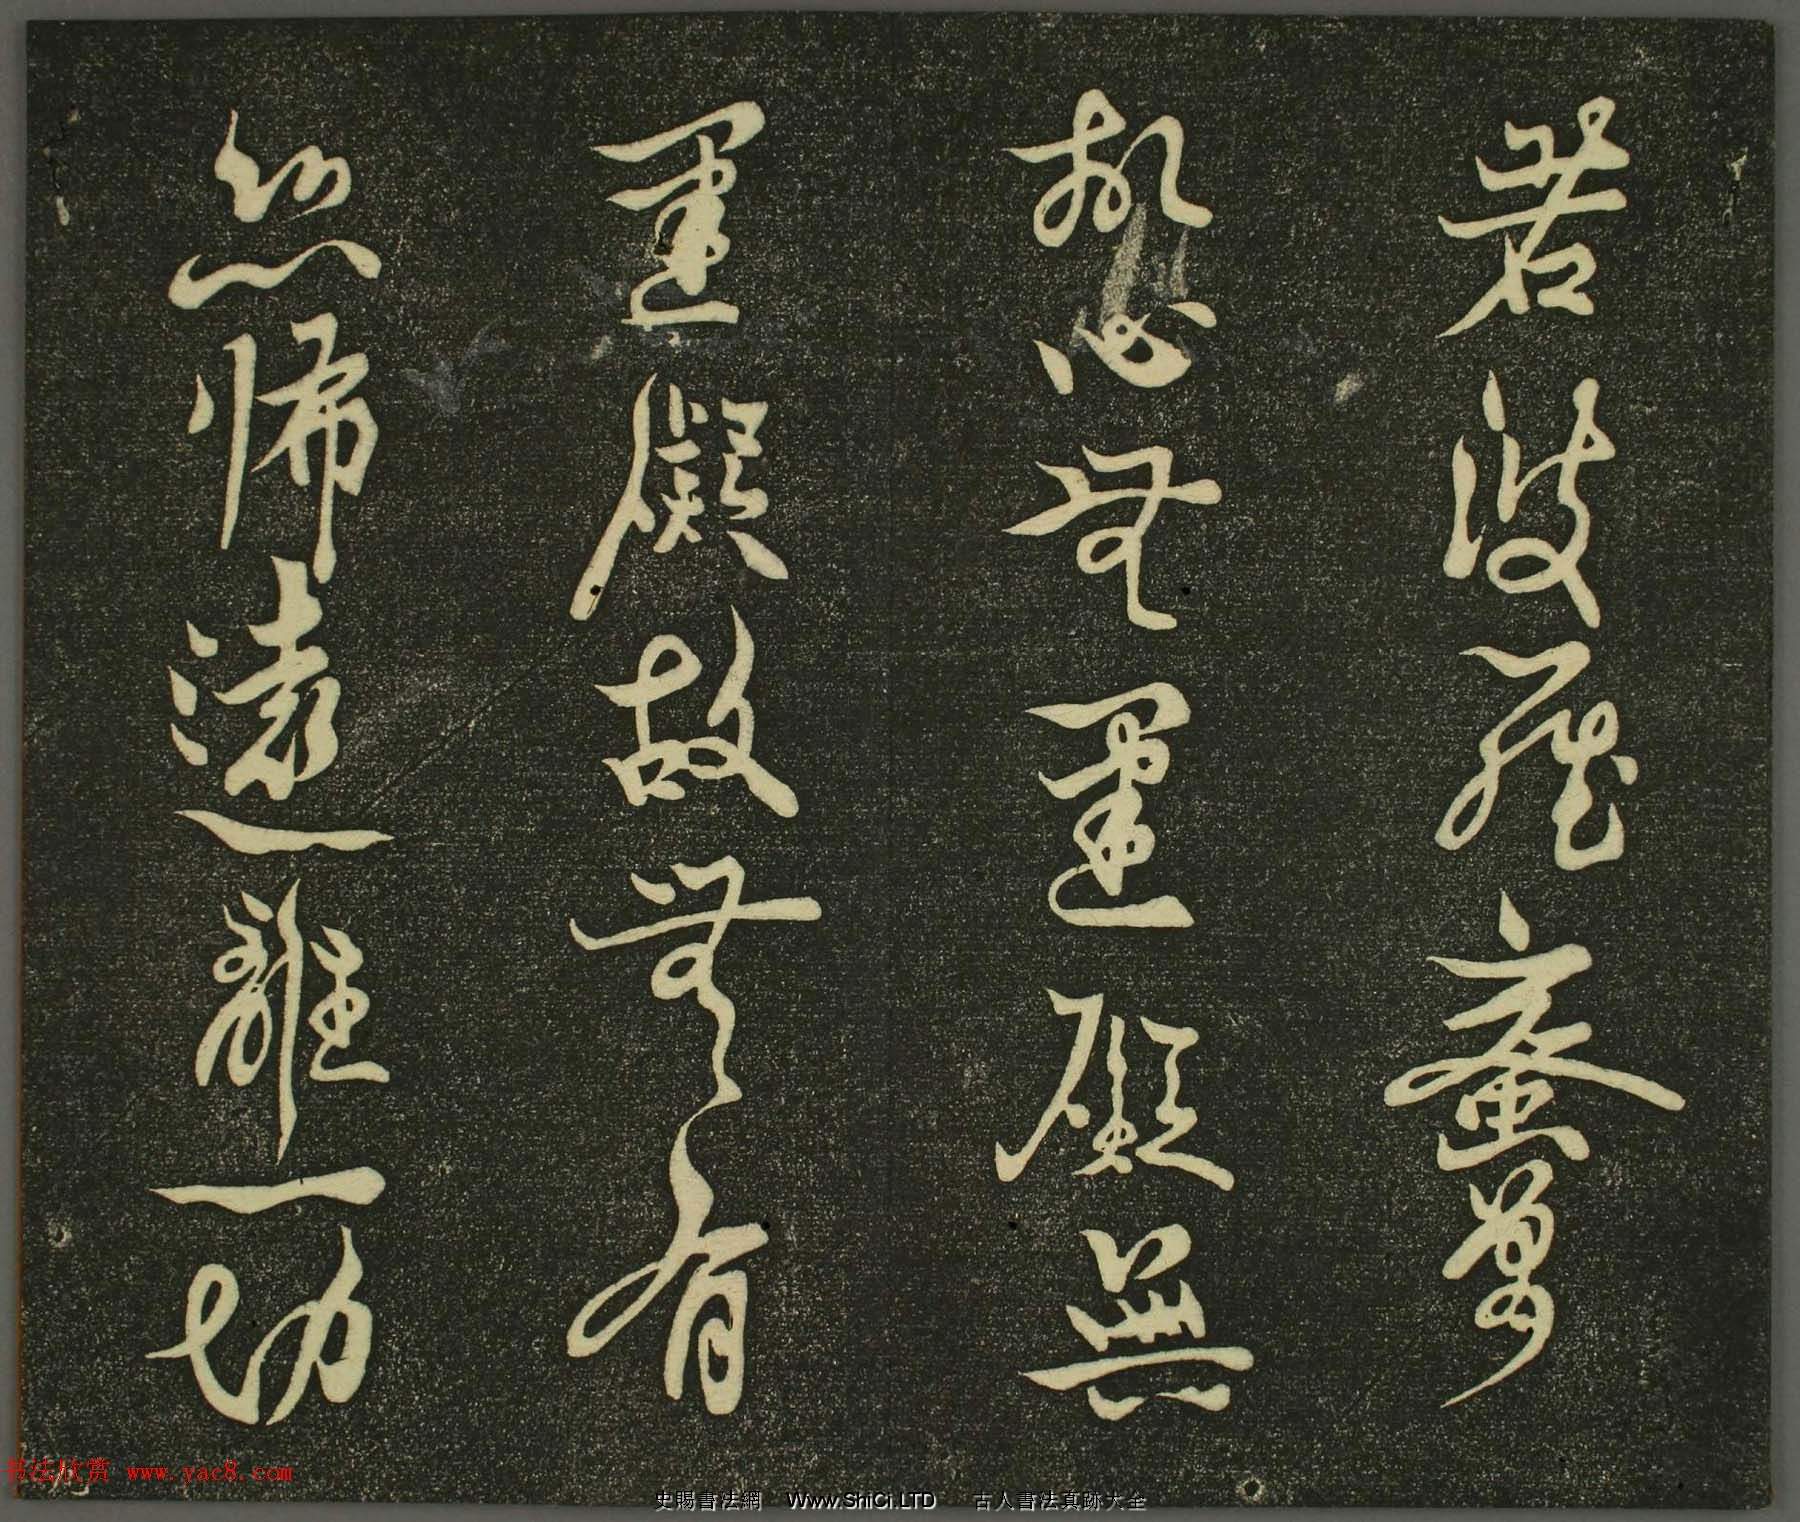 若波羅蜜多
故心無罣礙無
罣礙故無有
恐怖遠離一切
书法欣赏 www.yac8.com
史賜書法網 Www.ShiCi.LTD 古人書法真跡大全